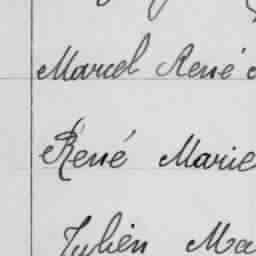 Marcel René
René Marie
Julien Ma